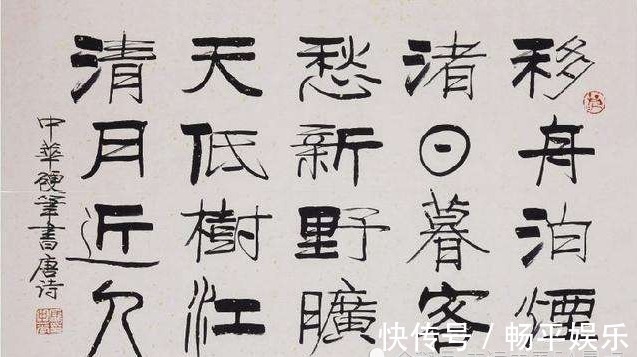 移舟泊煙
渚日暮客
愁新野曠
天低樹江
清月近人
中華硬筆書唐诗
快传号 / 畅平娱乐